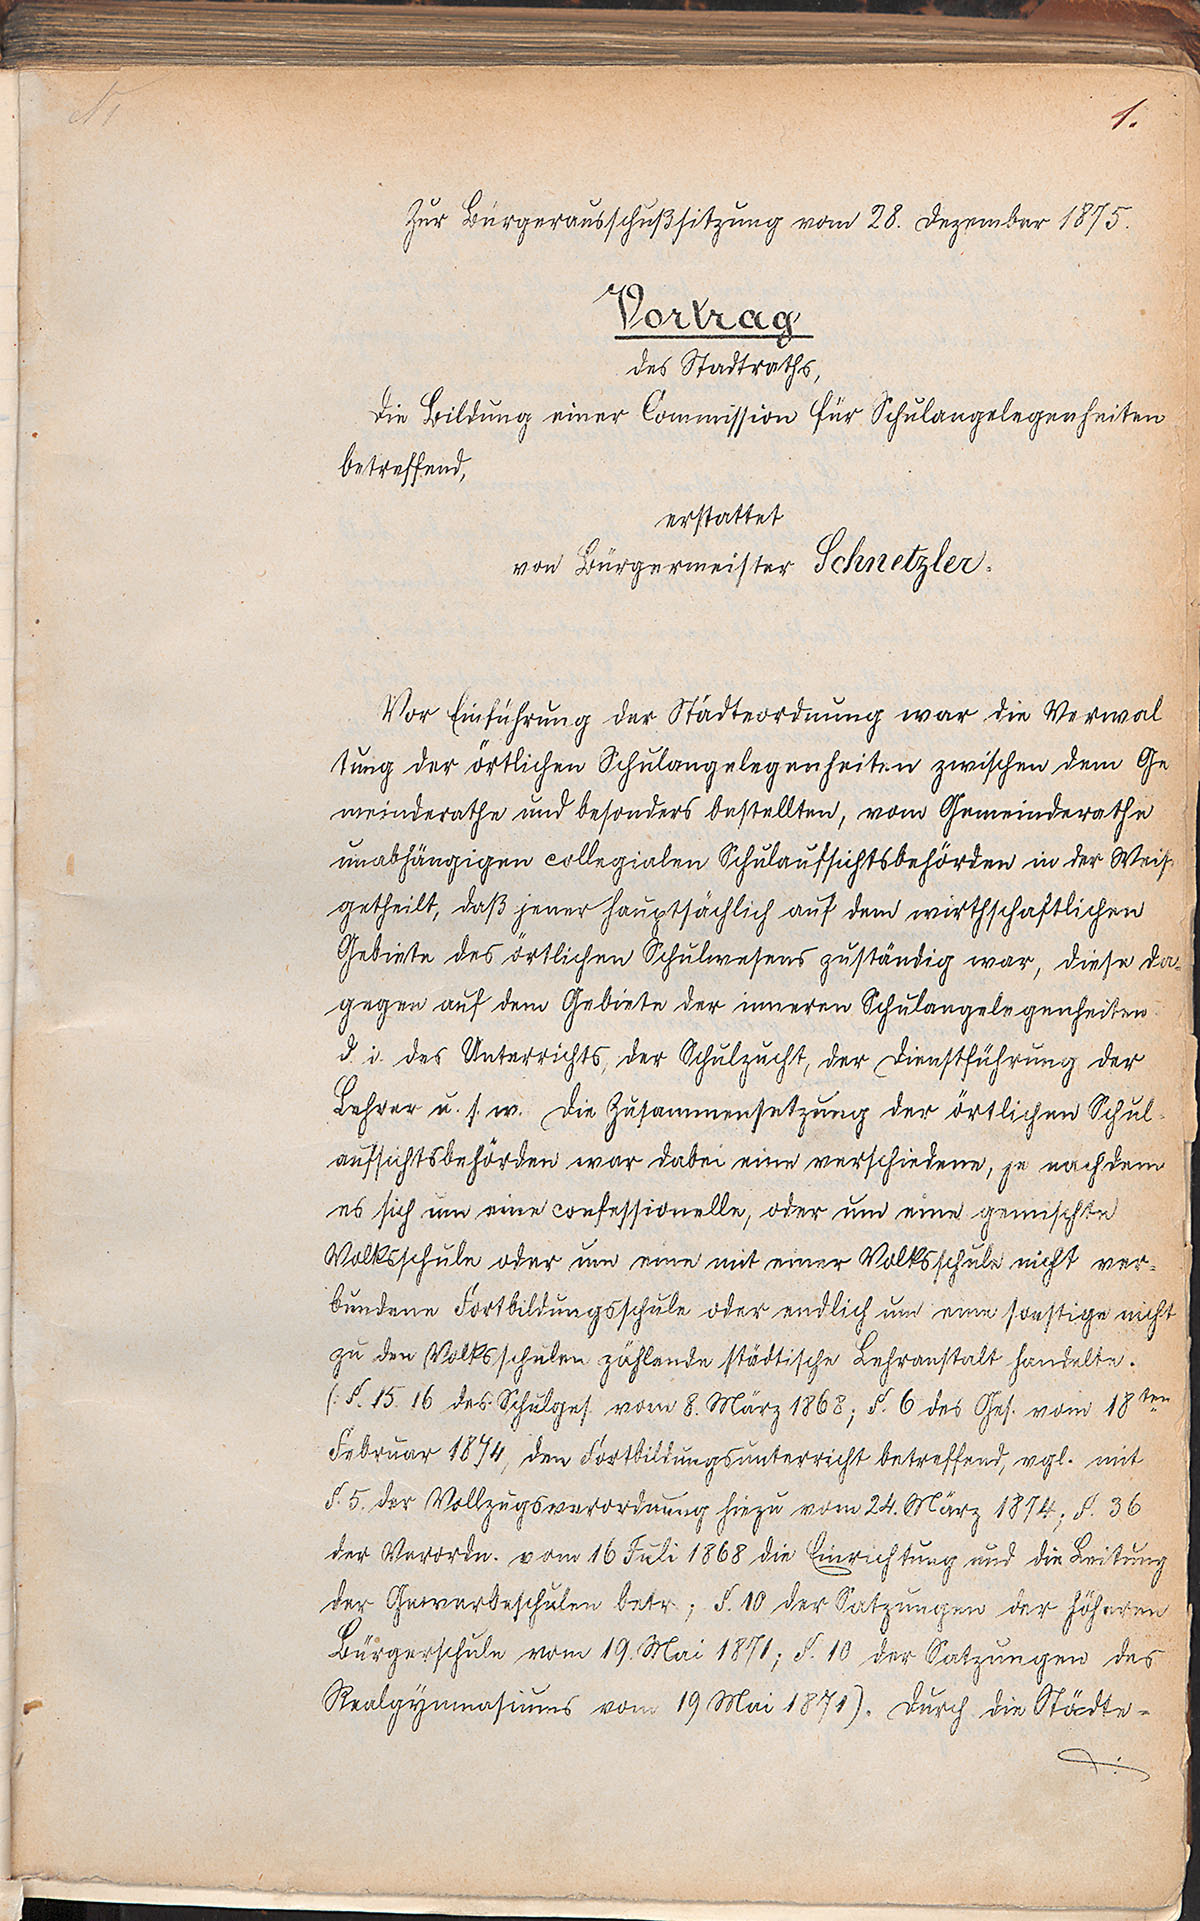 1.
Zur Bürgerausschußsitzung vom 28. Dezember 1875.
Vortrag
des Stadtraths,
Die Bildung einer Commission für Schulangelegenheiten
betreffend,
erstattet
von Bürgermeister Schnetzler.
Vor Einführung der Städteordnung war die Verwal
tung der örtlichen Schulangelegenheiten zwischen dem Ge
meinderathe und besonders bestellten, vom Gemeinderathe
unabhängigen collegialen Schulaufsichtsbehörden in der Weise
getheilt, daß jener hauptsächlich auf dem wirthschaftlichen
Gebiete des örtlichen Schulwesens zuständig war, diese da-
gegen auf dem Gebiete der inneren Schulangelegenheiten
d. i. des Unterrichts, der Schulzucht, der Dienstführung der
Lehrer u. s. w. Die Zusammensetzung der örtlichen Schul-
aufsichtsbehörden war dabei eine verschiedene, je nachdem
es sich um eine confessionelle, oder um eine gemischte
Volksschule oder um eine mit einer Volksschule nicht ver-
bundene Fortbildungsschule oder endlich um eine sonstige nicht
zu den Volksschulen zählende städtische Lehranstalt handelte.
(: §. 15. 16 des Schulges. vom 8. März 1868; §. 6 des Ges. vom 18ten
Februar 1874, den Fortbildungsunterricht betreffend, vgl. mit
§. 5. der Vollzugsverordnung hiezu vom 24. März 1874; §. 36
der Verordn. vom 16 Juli 1868 die Einrichtung und die Leitung
der Gewerbeschulen betr.; §. 10 der Satzungen der höheren
Bürgerschule vom 19. Mai 1871; §. 10 der Satzungen des
Realgymnasiums vom 19 Mai 1871). Durch die Städte-